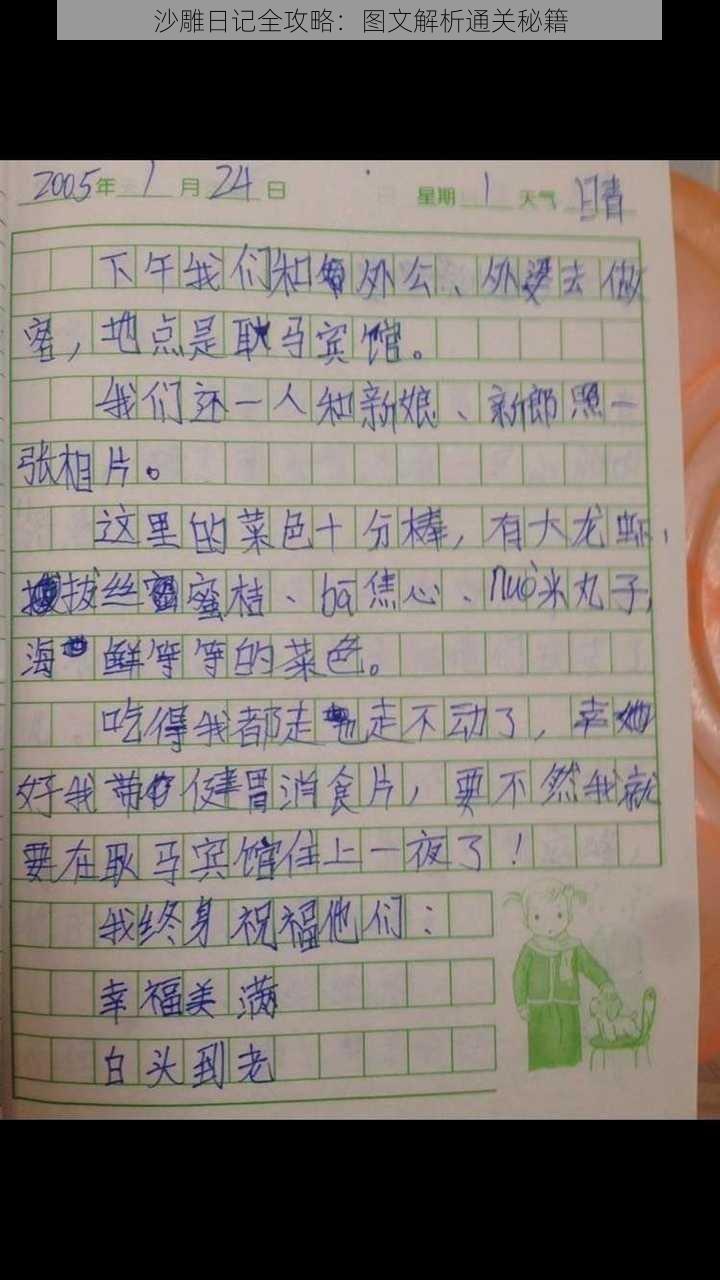 沙雕日记全攻略：图文解析通关秘籍
2005年1月24日 星期1 天气晴
下午我们和外公、外婆去做
客，地点是耿马宾馆。
我们还一人和新娘、新郎照一
张相片。
这里的菜色十分棒，有大龙虾，
拔丝蜜桔、bā焦心、nuò米丸子，
海鲜等等的菜色。
吃得我都走也走不动了，幸
好我带健胃消食片，要不然我就
要在耿马宾馆住上一夜了！
我终身祝福他们：
幸福美满
白头到老